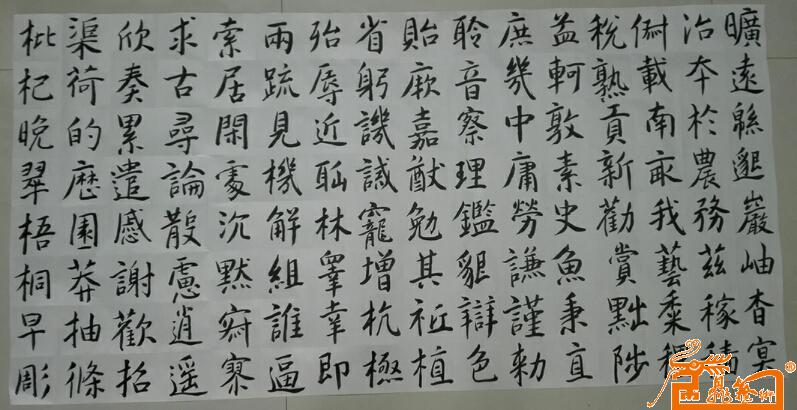 曠遠緜邈巖岫杳冥
治夲於農務茲稼穡
俶載南畝我藝黍稷
稅熟貢新勸賞黜陟
孟軻敦素史魚秉直
庶幾中庸勞謙謹勑
聆音察理鑑貌辯色
貽厥嘉猷勉其祗植
省躬譏誡寵增抗極
殆辱近耻林皋幸即
兩疏見機解組誰逼
索居閑處沉默寂寥
求古尋論散慮逍遥
欣奏累遣慼謝歡招
渠荷的歷園莽抽條
枇杷晚翠梧桐早彫